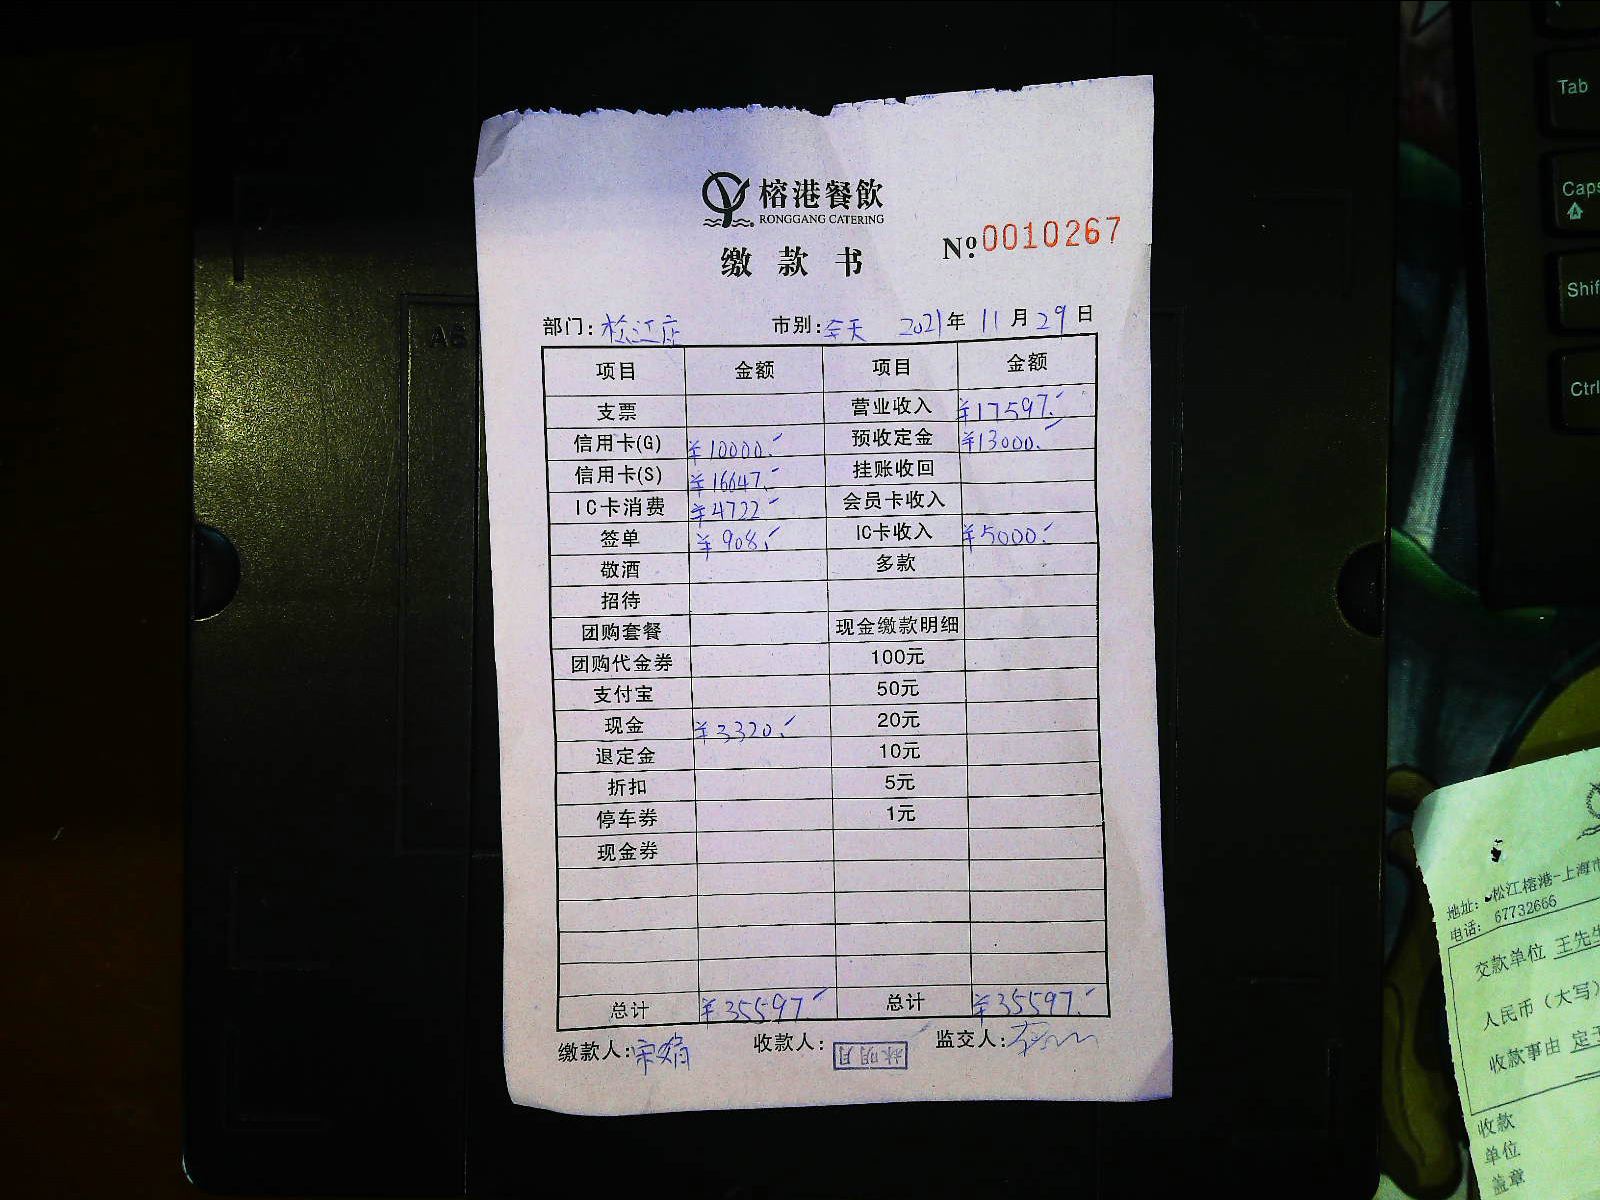 榕港餐飲
RONGGANG CATERING
缴款书
№ 0010267
部门: 松江店 市别: 全天 2021年 11月 29日
项目 金额 项目 金额
支票 营业收入 ¥17597.-
信用卡(G) ¥10000.- 预收定金 ¥13000.-
信用卡(S) ¥16647.- 挂账收回
IC卡消费 ¥4722.- 会员卡收入
签单 ¥908.- IC卡收入 ¥5000.-
敬酒 多款
招待
团购套餐 现金缴款明细
团购代金券 100元
支付宝 50元
现金 ¥3320.- 20元
退定金 10元
折扣 5元
停车券 1元
现金券
总计 ¥35597.- 总计 ¥35597.-
缴款人: 收款人: 林明月 监交人:
A6
Tab
Caps
Shif
Ctrl
地址: 松江榕港-上海市
电话: 67732666
交款单位 王先生
人民币（大写）
收款事由 定
收款
单位
盖章